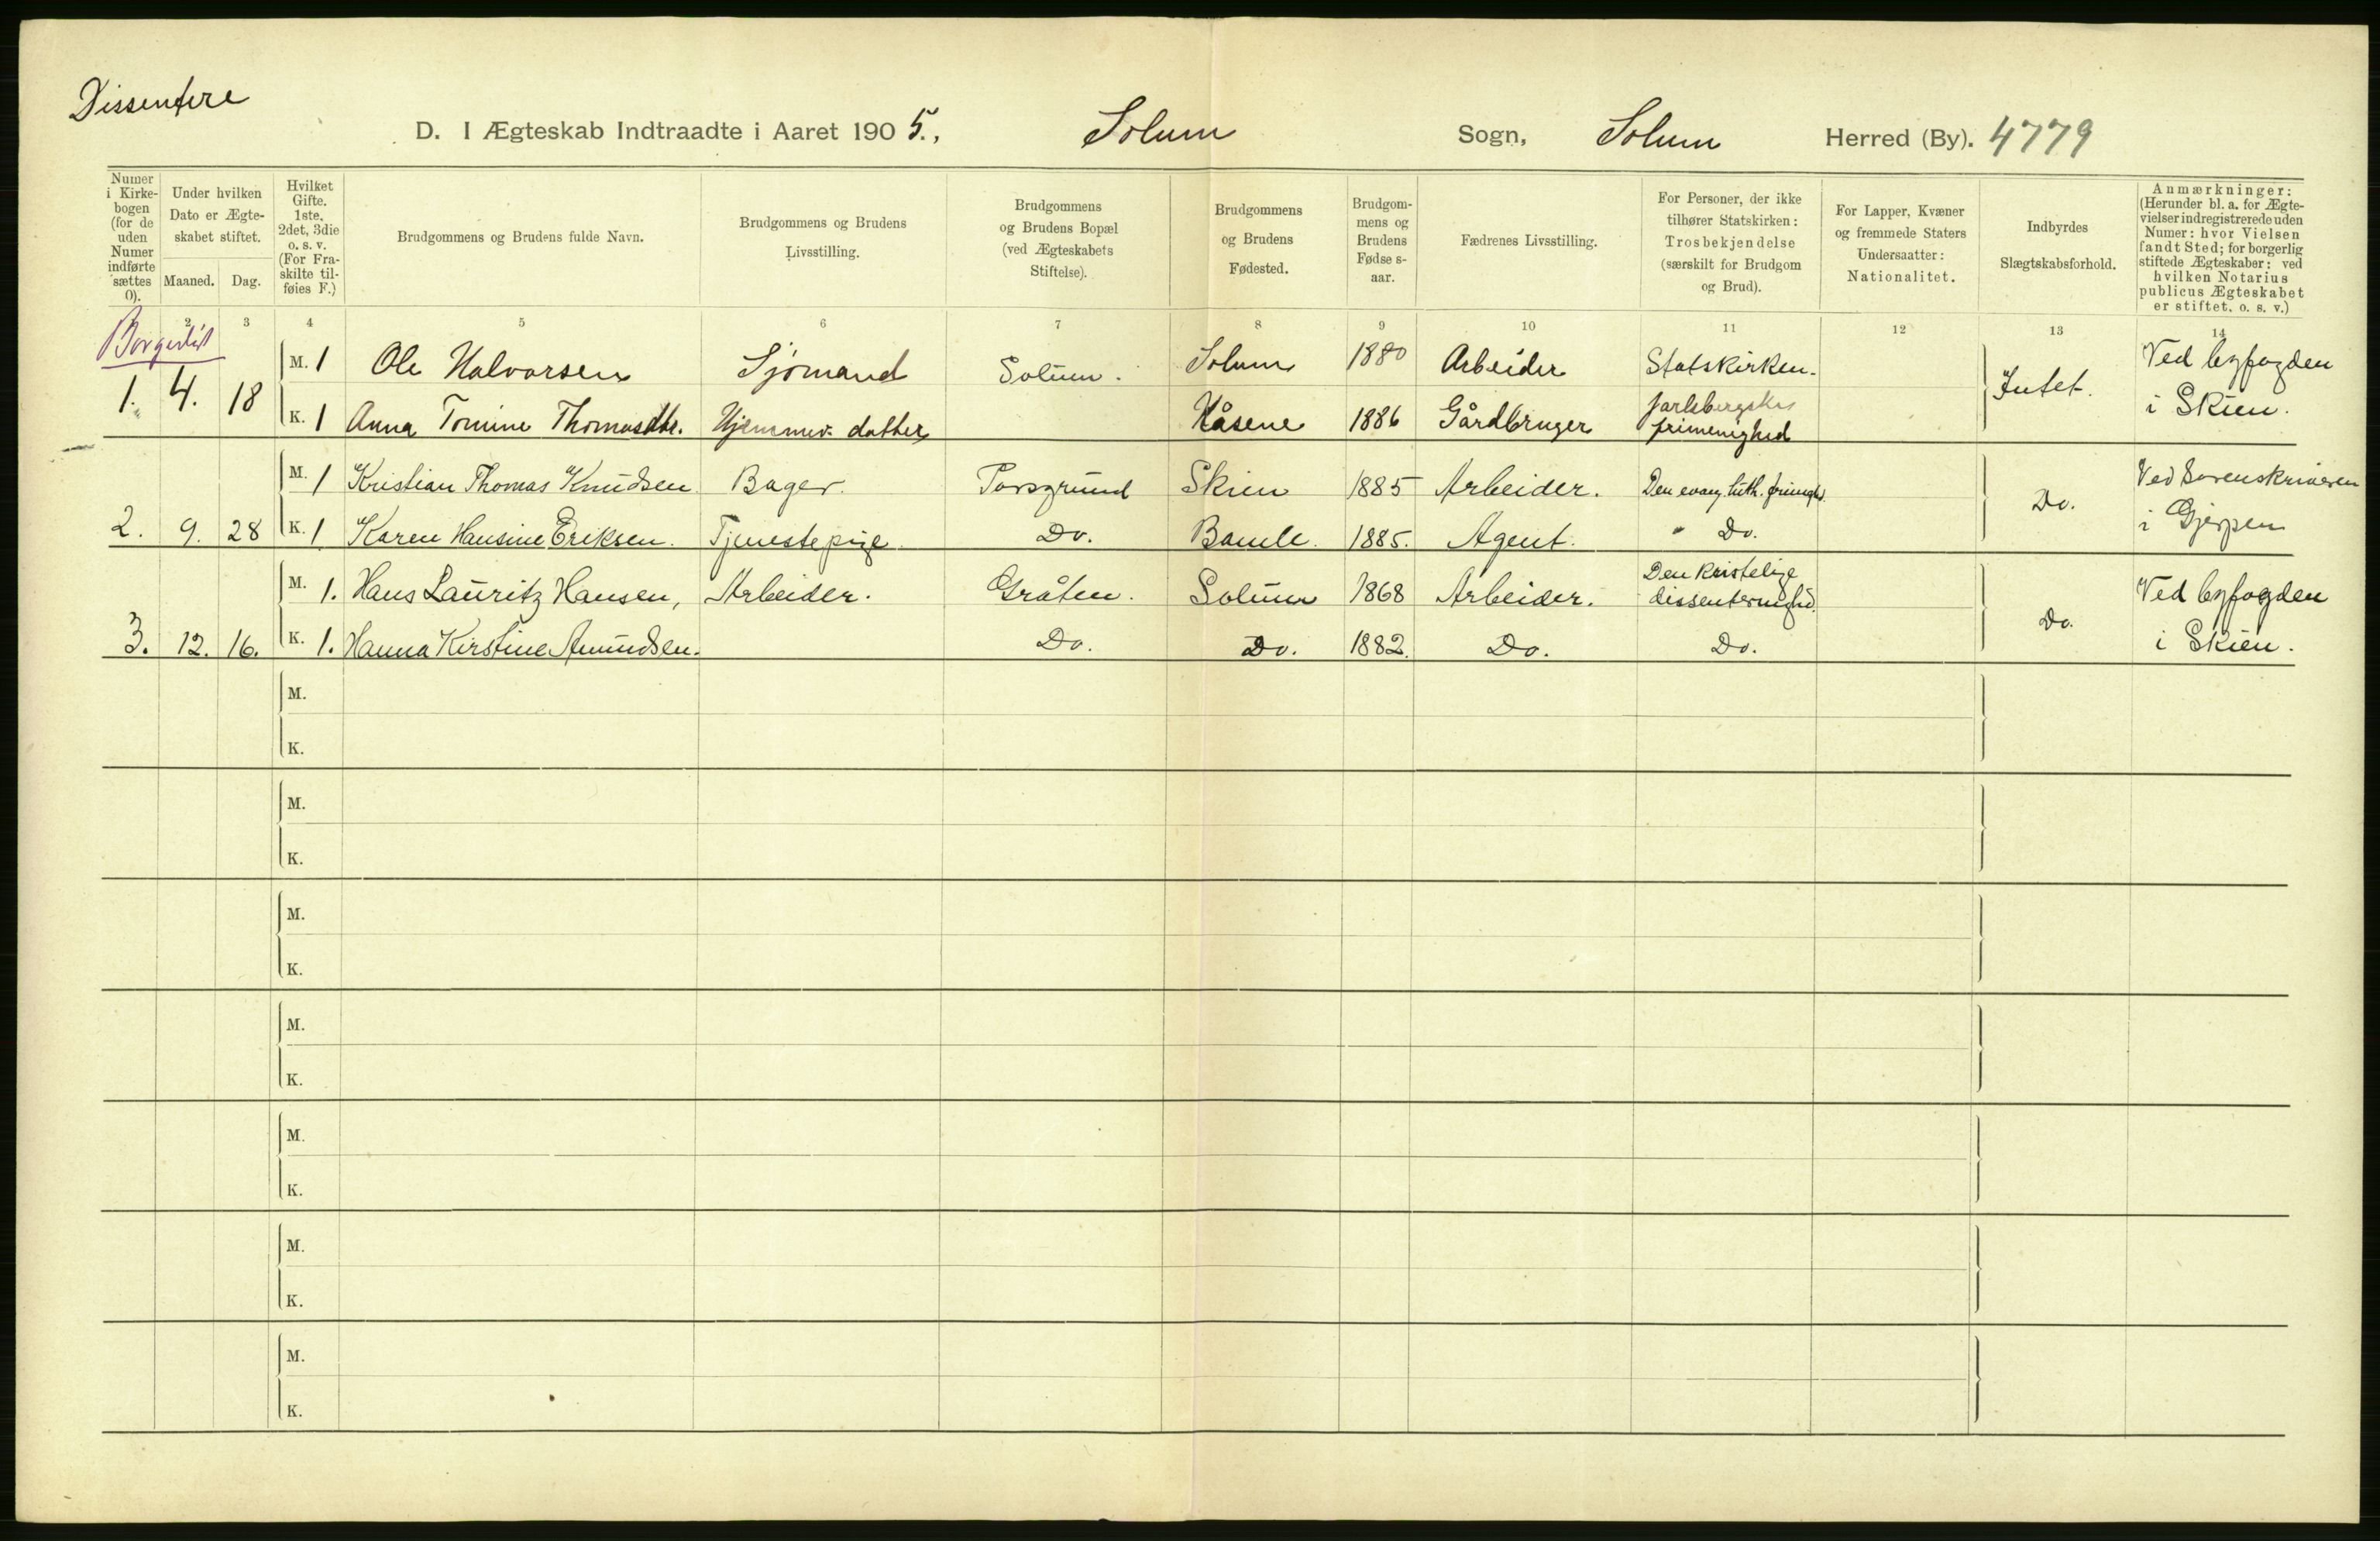 Dissentere
D. I Ægteskab Indtraadte i Aaret 1905., Solum Sogn, Solum Herred (By). 4779
Numer i Kirkebogen (for de uden Numer indførte sættes 0).
Under hvilken Dato er Ægteskabet stiftet.
Maaned. Dag.
Hvilket Gifte. 1ste, 2det, 3die o. s. v. (For Fraskilte tilføies F.)
Brudgommens og Brudens fulde Navn.
Brudgommens og Brudens Livsstilling.
Brudgommens og Brudens Bopæl (ved Ægteskabets Stiftelse).
Brudgommens og Brudens Fødested.
Brudgommens og Brudens Fødse s-aar.
Fædrenes Livsstilling.
For Personer, der ikke tilhører Statskirken: Trosbekjendelse (særskilt for Brudgom og Brud).
For Lapper, Kvæner og fremmede Staters Undersaatter: Nationalitet.
Indbyrdes Slægtskabsforhold.
Anmærkninger: (Herunder bl. a. for Ægtevielser indregistrerede uden Numer: hvor Vielsen fandt Sted; for borgerlig stiftede Ægteskaber: ved hvilken Notarius publicus Ægteskabet er stiftet, o. s. v.)
2 3 4 5 6 7 8 9 10 11 12 13 14
M. 1 Ole Halvorsen Sjømand Solum. Solum 1880 Arbeider Statskirken. Intet. Ved byfogden
1. 4. 18 K. 1 Anna Tomine Thomasdtr. Hjemmev. datter Kåsene 1886 Gårdbruger Jarlsbergske frimenighed i Skien.
M. 1 Kristian Thomas Knudsen Bager. Porsgrund Skien 1885 Arbeider. Den evang. luth. frimgh. Do. Ved Sorenskriveren
2. 9. 28 K. 1 Karen Hansine Eriksen. Tjenestepige. Do. Bamle. 1885. Agent. Do. i Gjerpen
M. 1. Hans Lauritz Hansen, Arbeider. Gråten. Solum 1868 Arbeider. Den kristelige dissentermghd. Do. Ved byfogden
3. 12. 16. K. 1. Hanna Kirstine Amundsen. Do. Do. 1882. Do. Do. i Skien.
M.
K.
M.
K.
M.
K.
M.
K.
M.
K.
M.
K.
M.
K.